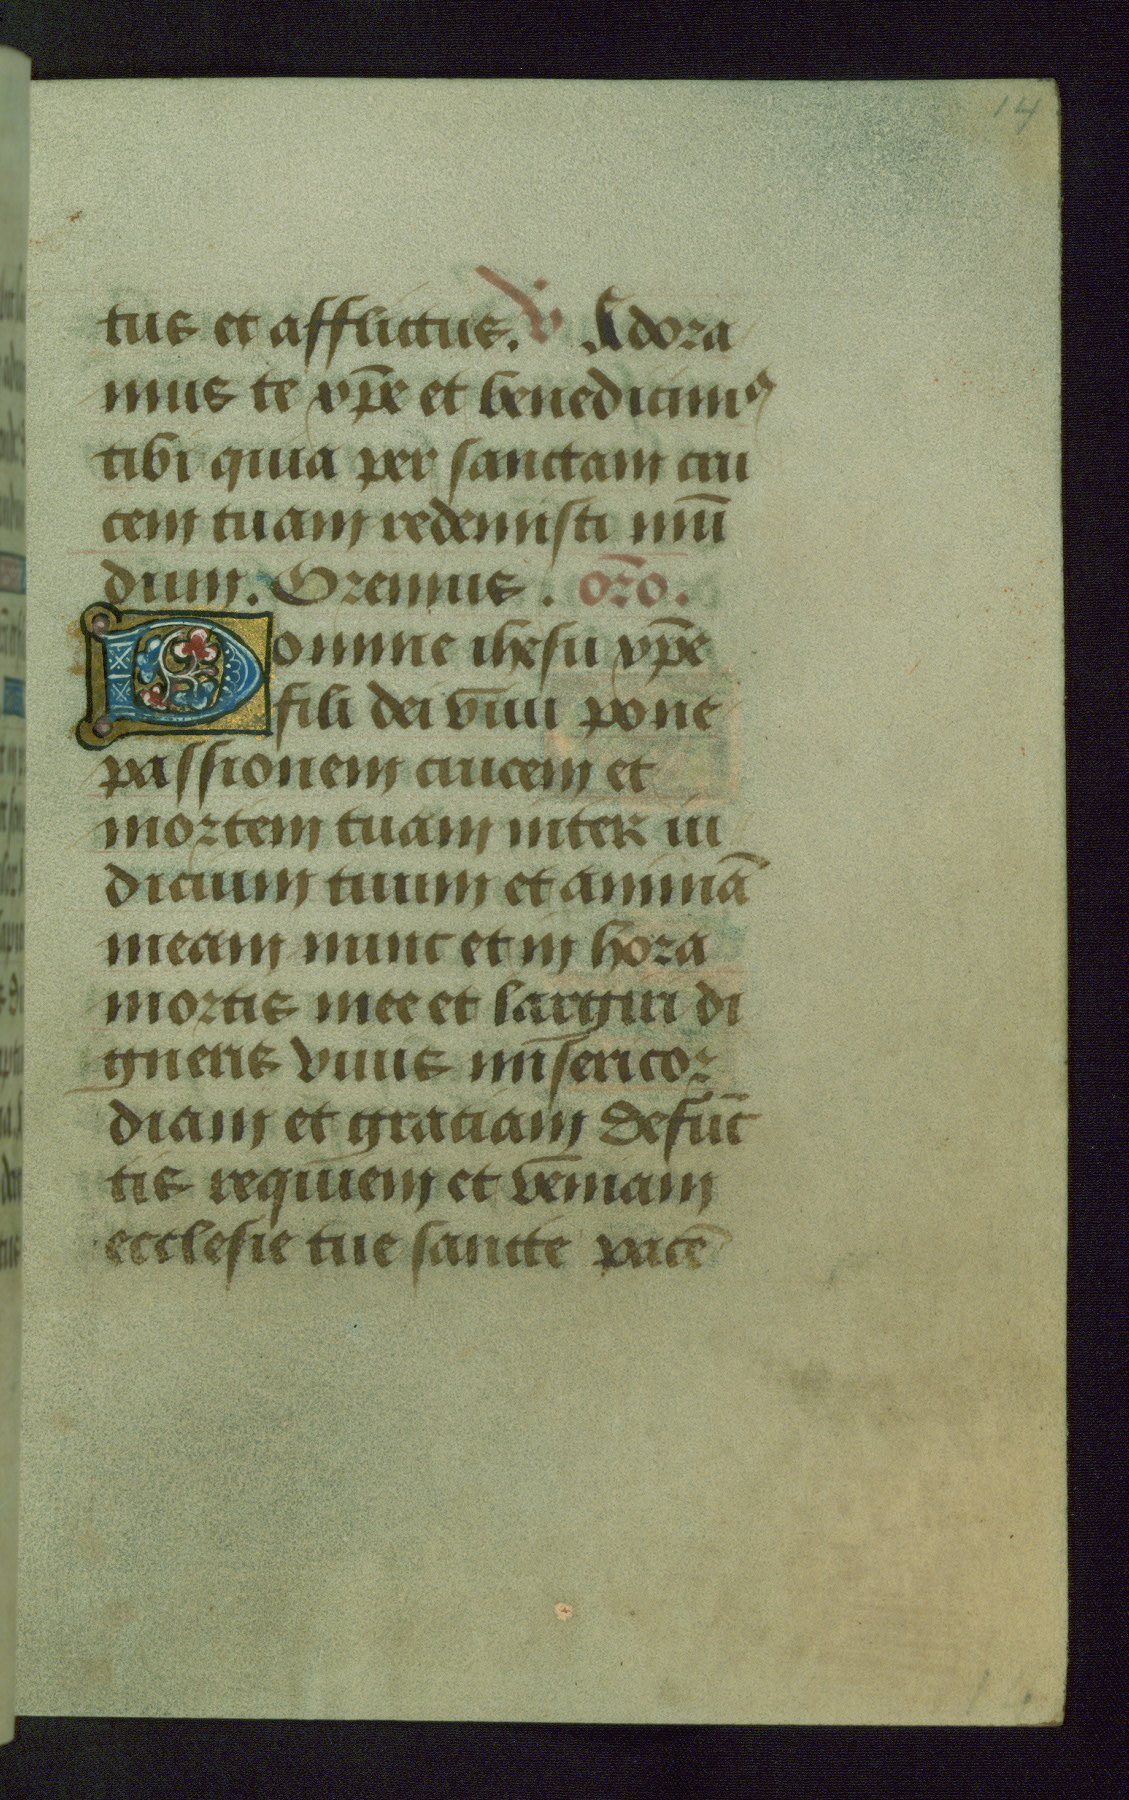 14
tus et afflictus. V̓ Adora
mus te xp̄e et benedicimꝰ
tibi quia per sanctam cru
cem tuam redemisti mū
dum. Oremus. Or̄o.
Domine ihesu xp̄e
fili dei viui pone
passionem crucem et
mortem tuam inter iu
dicium tuum et animā
meam nunc et in hora
mortis mee et largiri di
gneris viuis misericor
diam et graciam defūc
tis requiem et veniam
ecclesie tue sancte pacē